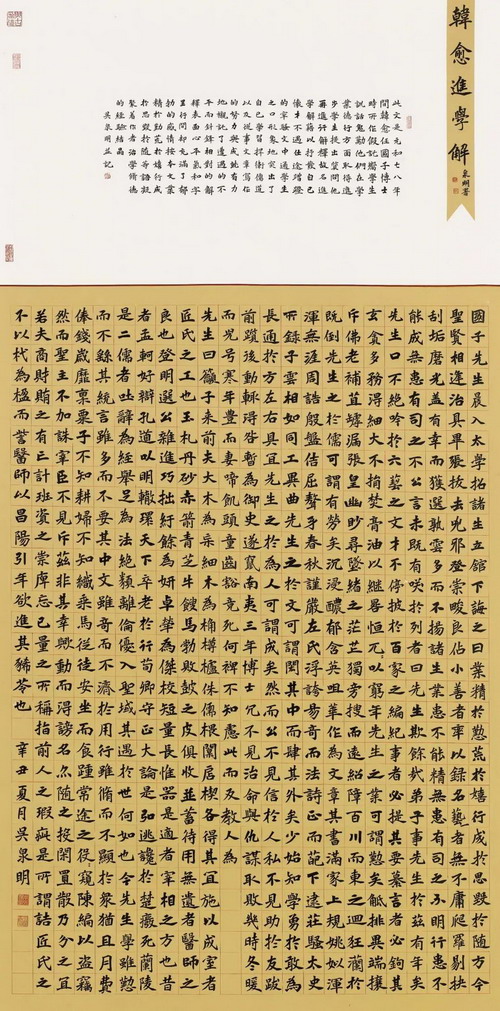 韓愈進學解
泉明署
此文是元和七八年
間韓愈任國子博士
時所作假託向學生
訓話勉勵他們在學
業德行方面取得進
步學生提出質問他
再進行解釋故名進
學解藉以抒發自己
懷才不遇仕途蹭蹬
的牢騷文中通過學生
之口形象地突出了
自己學習捍衛儒道
以及從事文章寫作
的努力與成就有力
地襯託了遭遇的不
平而針鋒相對的解
釋表面心平氣和字
裡行間卻充滿了鬱
勃的感情按本文業
精於勤荒於嬉行成
於思毀於隨等語凝
聚着作者治學修德
的經驗結晶
吳泉明並記
國子先生晨入太學招諸生立館下誨之曰業精於勤荒於嬉行成於思毀於隨方今
聖賢相逢治具畢張拔去兇邪登崇畯良佔小善者率以錄名藝者無不庸爬羅剔抉
刮垢磨光蓋有幸而獲選孰雲多而不揚諸生業患不能精無患有司之不明行患不
能成無患有司之不公言未既有笑於列者曰先生欺餘哉弟子事先生於茲有年矣
先生口不絕吟於六藝之文手不停披於百家之編紀事者必提其要纂言者必鉤其
玄貪多務得細大不捐焚膏油以繼晷恆兀以窮年先生之業可謂勤矣觝排異端攘
斥佛老補苴罅漏張皇幽眇尋墜緒之茫茫獨旁搜而遠紹障百川而東之迴狂瀾於
既倒先生之於儒可謂有勞矣沉浸醲郁含英咀華作為文章其書滿家上規姚姒渾
渾無涯周誥殷盤佶屈聱牙春秋謹嚴左氏浮誇易奇而法詩正而葩下逮莊騷太史
所錄子雲相如同工異曲先生之於文可謂閎其中而肆其外矣少始知學勇於敢為
長通於方左右具宜先生之於為人可謂成矣然而公不見信於人私不見助於友跋
前躓後動輒得咎暫為御史遂竄南夷三年博士冗不見治命與仇謀取敗幾時冬暖
而兒號寒年豐而妻啼飢頭童齒豁竟死何裨不知慮此而反教人為
先生曰籲子來前夫大木為杗細木為桷欂櫨侏儒椳闑扂楔各得其宜施以成室者
匠氏之工也玉札丹砂赤箭青芝牛溲馬勃敗鼓之皮俱收並蓄待用無遺者醫師之
良也登明選公雜進巧拙紆餘為妍卓犖為傑校短量長惟器是適者宰相之方也昔
者孟軻好辯孔道以明轍環天下卒老於行荀卿守正大論是弘逃讒於楚廢死蘭陵
是二儒者吐辭為經舉足為法絕類離倫優入聖域其遇於世何如也今先生學雖勤
而不繇其統言雖多而不要其中文雖奇而不濟於用行雖修而不顯於眾猶且月費
俸錢歲靡廩粟子不知耕婦不知織乘馬從徒安坐而食踵常途之役窺陳編以盜竊
然而聖主不加誅宰臣不見斥茲非其幸歟動而得謗名亦隨之投閑置散乃分之宜
若夫商財賄之有亡計班資之崇庳忘己量之所稱指前人之瑕疵是所謂詰匠氏之
不以杙為楹而訾醫師以昌陽引年欲進其豨苓也 辛丑夏月吳泉明